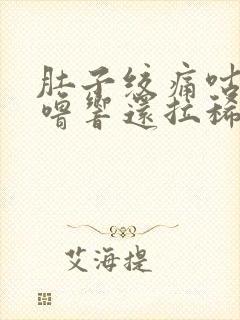 肚子绞痛咕
噜響還拉稀
艾海提